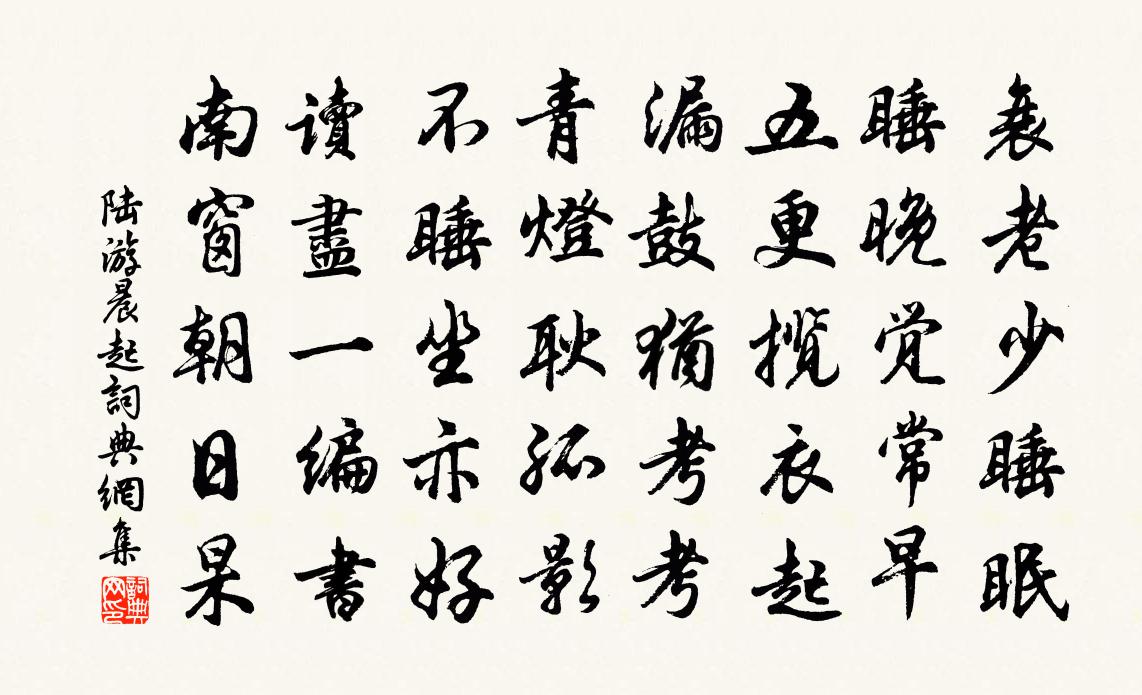 衰老少睡眠
睡晚觉常早
五更揽衣起
漏鼓猶考考
青燈耿孤影
不睡坐亦好
讀盡一编書
南窗朝日杲
陆游晨起詞典網集
詞典网印